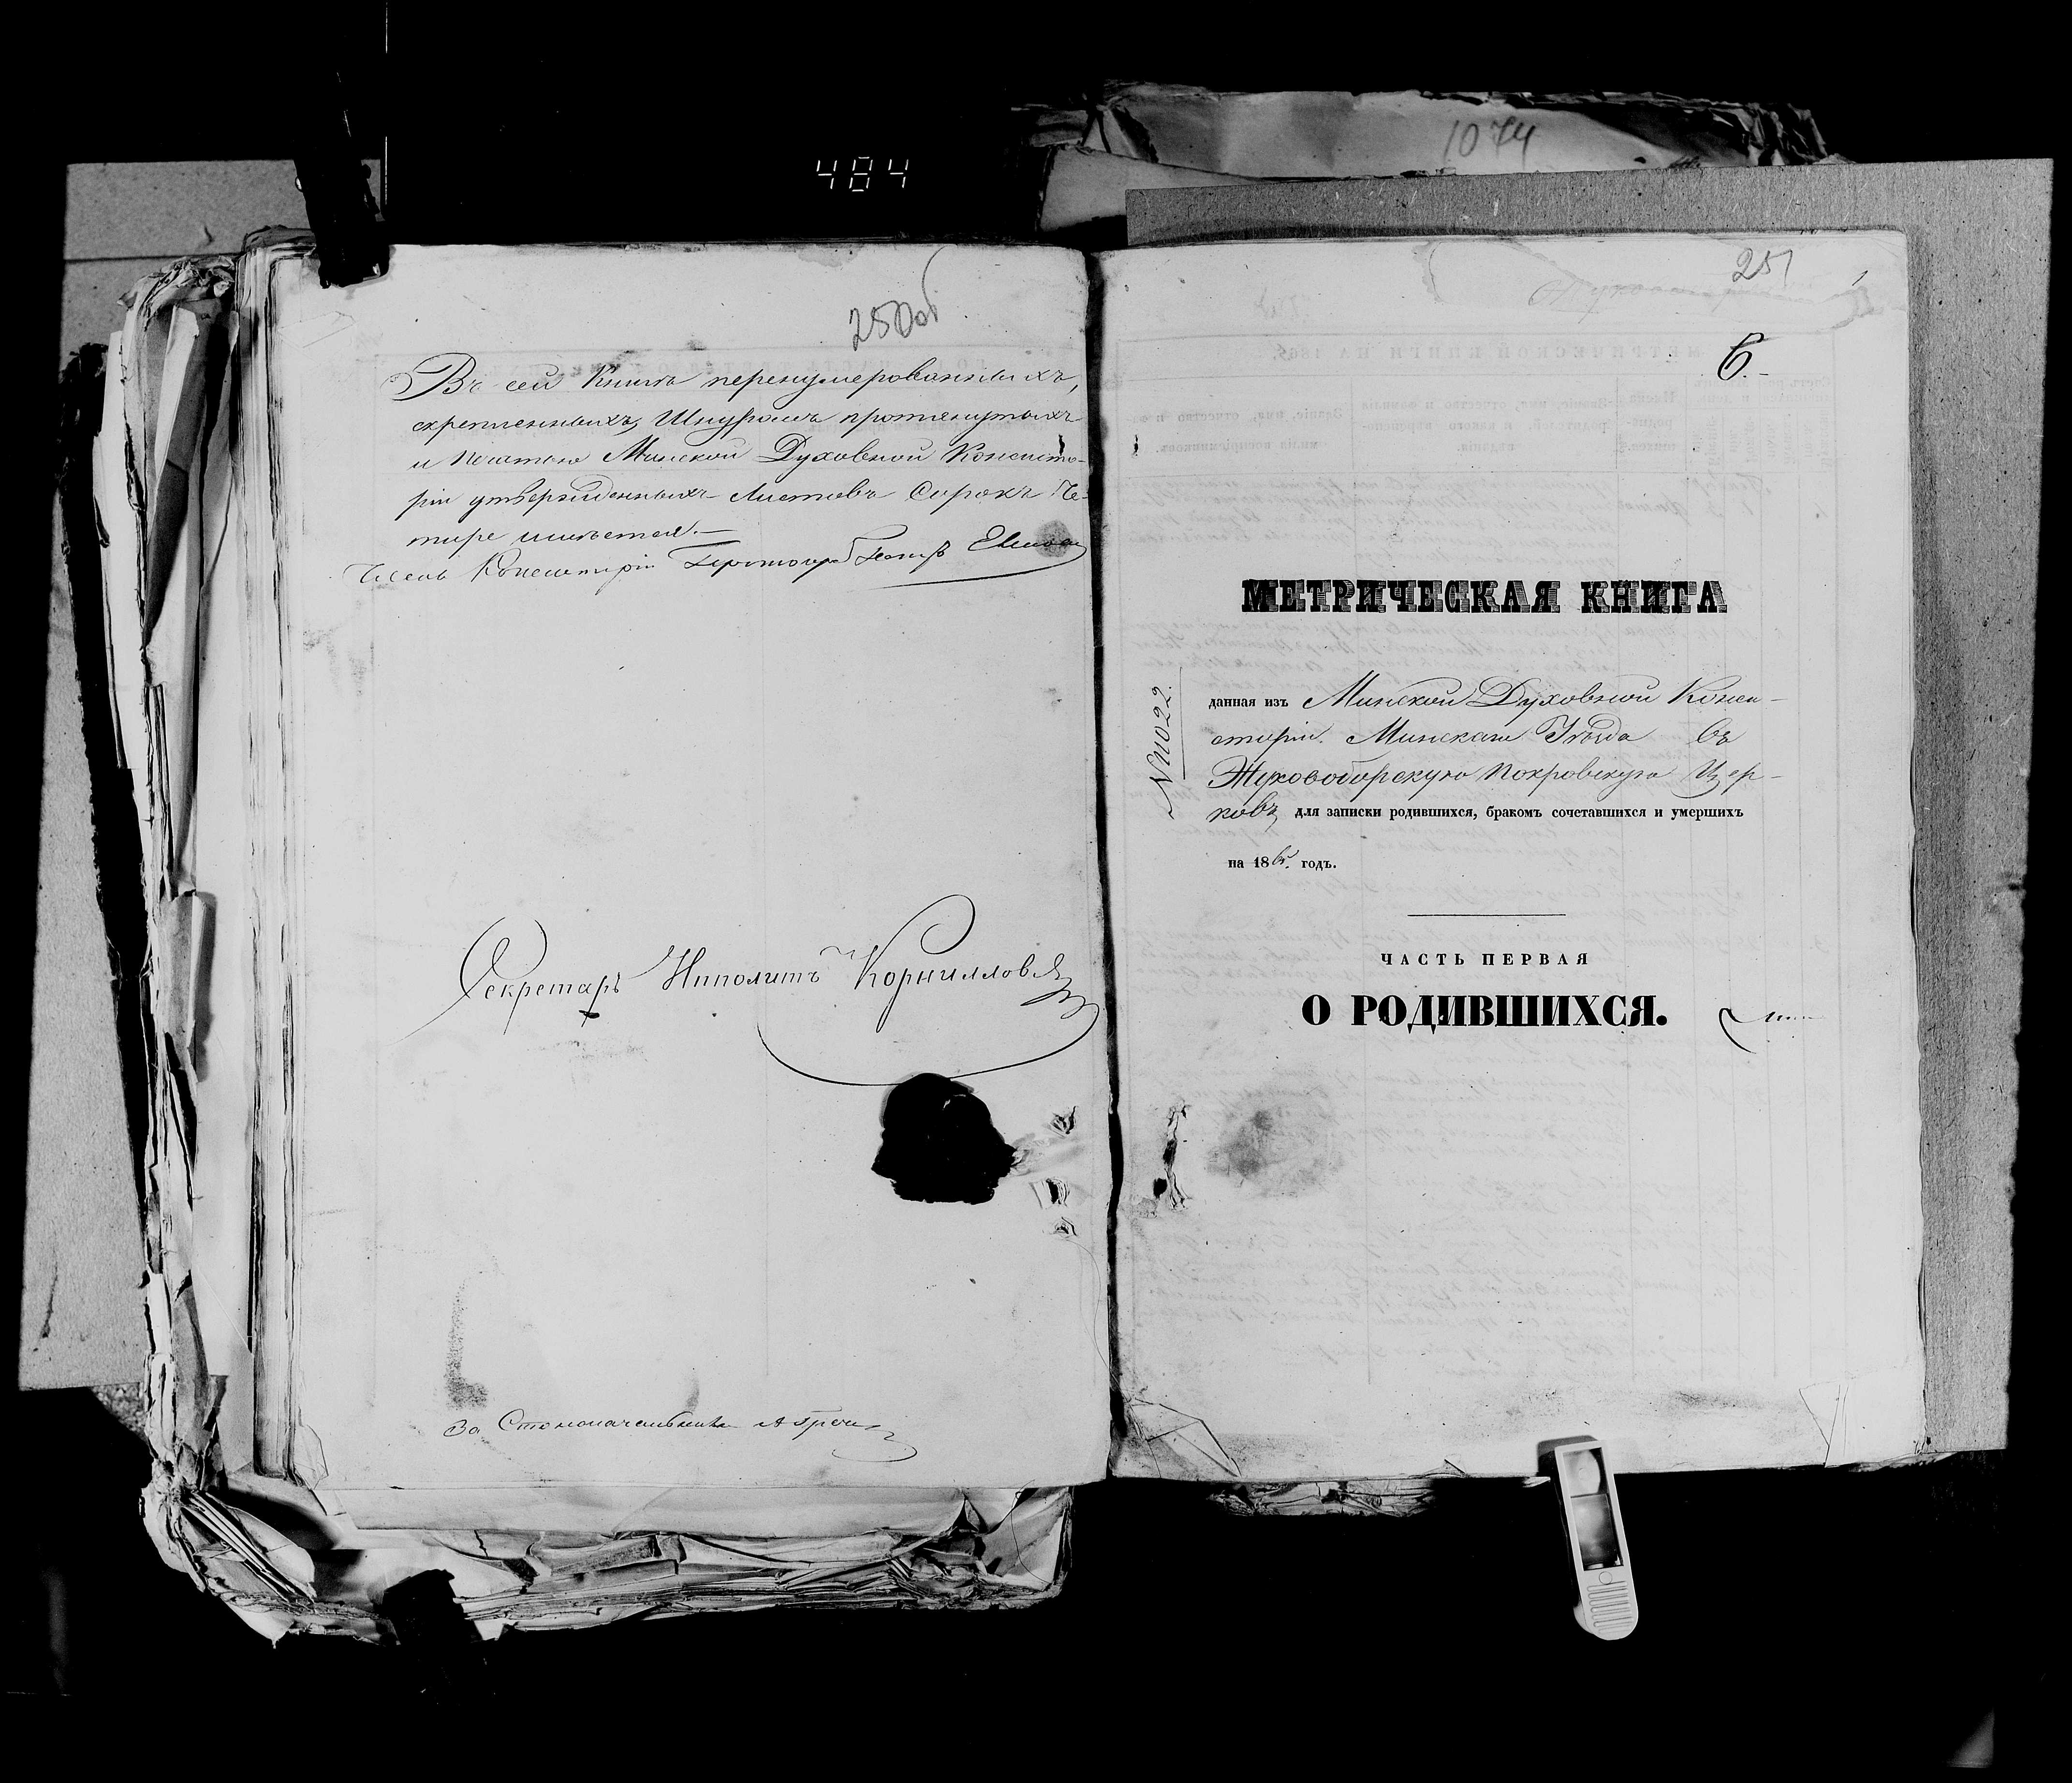 484
1074
250об
Въ сей Книгѣ перенумерованныхъ,
скрепленныхъ, Шнуромъ протянутыхъ
и печатью Минской Духовной Консисто-
ріи утвержденныхъ Листовъ Сорокъ Че-
тыре имѣется.—
Членъ Консисторіи Протоіерей Петръ
Секретарь Ипполитъ Корнилловъ
За Столоначальника
251
6.
МЕТРИЧЕСКАЯ КНИГА
№11022.
данная изъ Минской Духовной Конси-
сторіи. Минскаго Уѣзда въ
Жуковоборскую Покровскую Цер-
ковь для записки родившихся, бракомъ сочетавшихся и умершихъ
на 1865. годъ.
ЧАСТЬ ПЕРВАЯ
О РОДИВШИХСЯ.